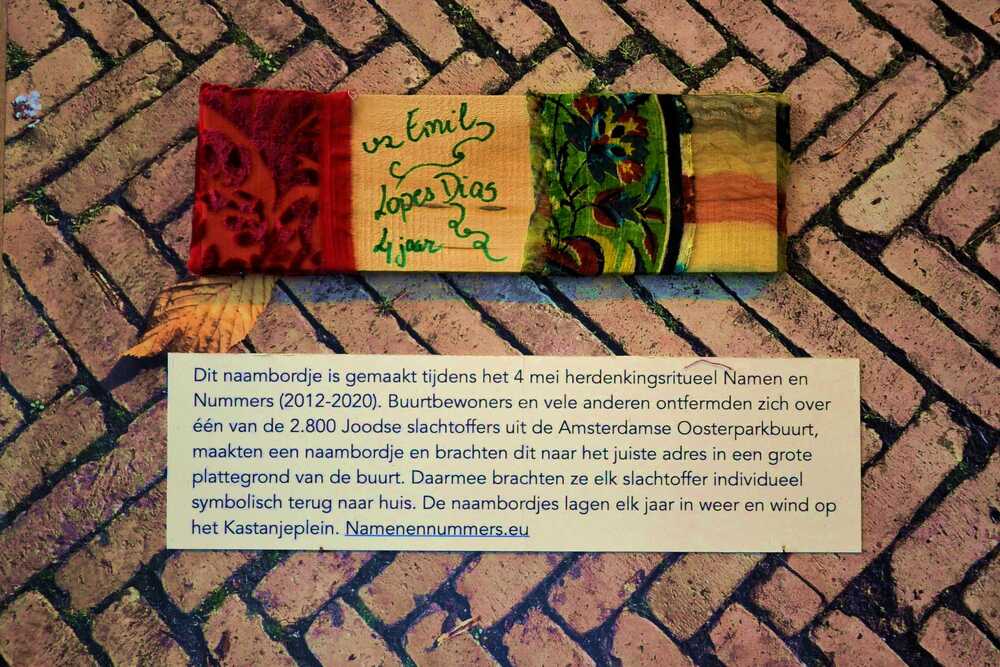 v2 Emil
Lopes Dias
4 jaar
Dit naambordje is gemaakt tijdens het 4 mei herdenkingsritueel Namen en
Nummers (2012-2020). Buurtbewoners en vele anderen ontfermden zich over
één van de 2.800 Joodse slachtoffers uit de Amsterdamse Oosterparkbuurt,
maakten een naambordje en brachten dit naar het juiste adres in een grote
plattegrond van de buurt. Daarmee brachten ze elk slachtoffer individueel
symbolisch terug naar huis. De naambordjes lagen elk jaar in weer en wind op
het Kastanjeplein. Namenennummers.eu